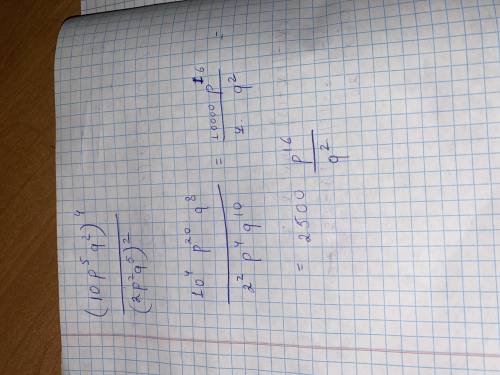 (10p⁵q²)⁴ / (2p²q⁵)²
10⁴ p²⁰ q⁸ / 2² p⁴ q¹⁰ = 10000 p¹⁶ / 4 · q² =
= 2500 p¹⁶ / q²